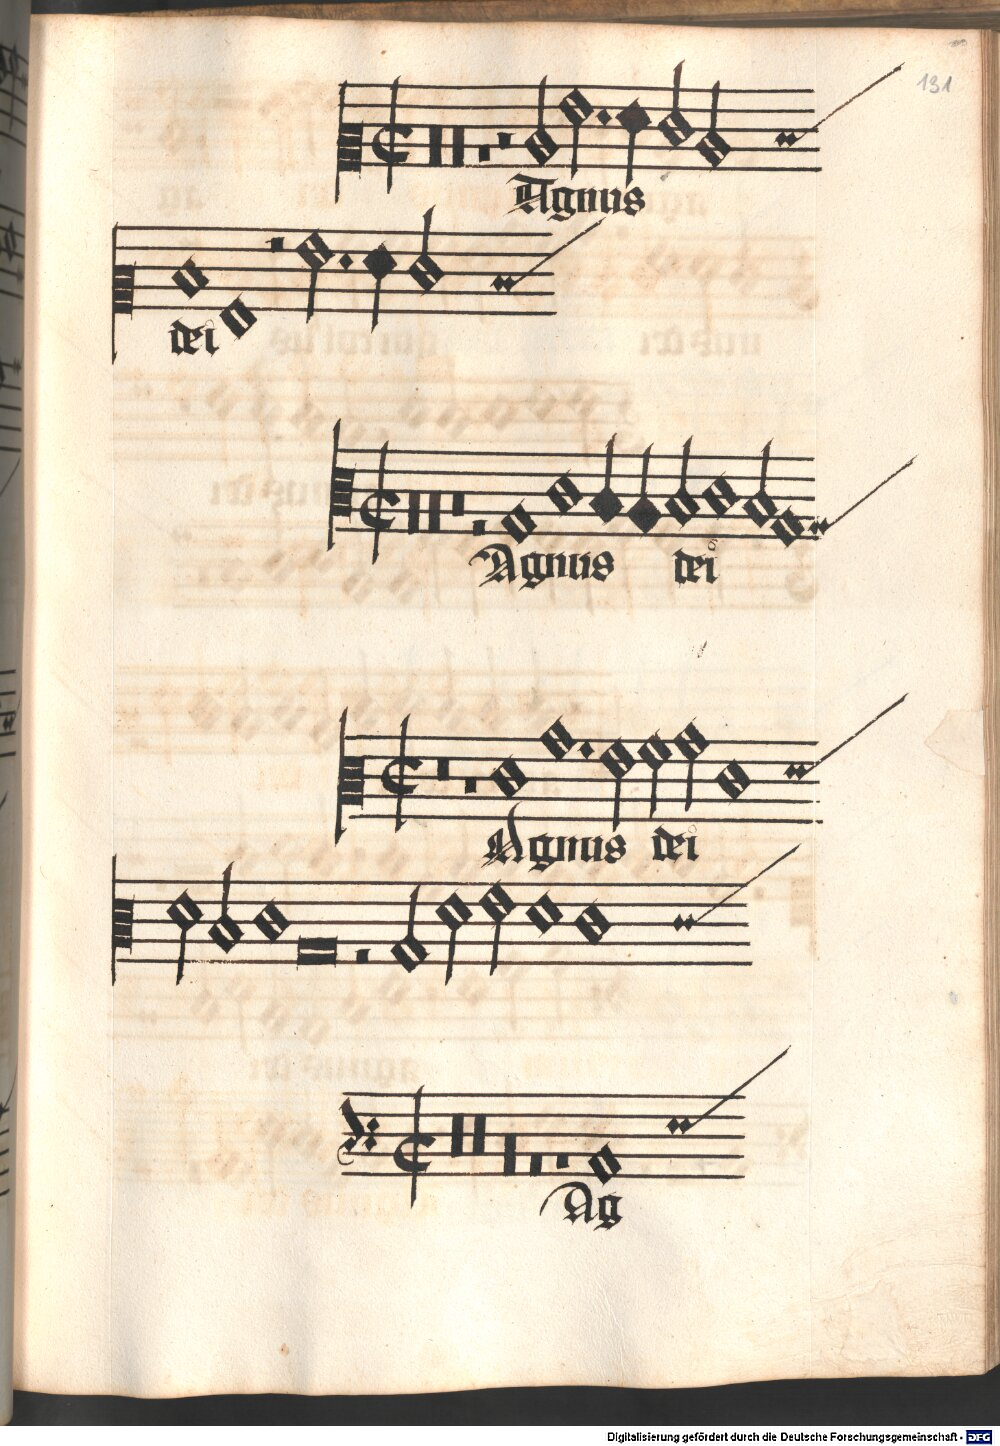 131
Agnus
dei
Agnus dei
Agnus dei
Ag
Digitalisierung gefördert durch die Deutsche Forschungsgemeinschaft - DFG